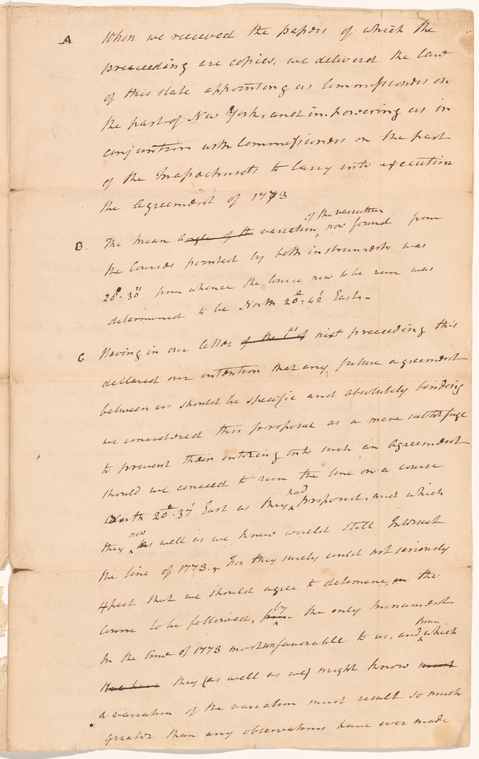 A When we received the papers of which the
preceeding are copies, we delivered the law
of this state appointing us Commissioners on
the part of New York, and impowering us in
conjunction with Commissioners on the part
of the Massachusetts to carry into execution
the Agreement of 1773
of the variation
B. The mean angle of the variation, now found from
the Courses pointed by both instruments was
from whence the Course now to be run was
determined to be North East.
C Having in our letter of the next preceeding this
declared our intention that any future agreement
between us should be specific and absolutely binding
we considered this proposal as a mere subterfuge
to prevent their entering into such an Agreement
should we conceed to run the line on a course
had
North 20d. 37' East as they proposed, and which
now
they as well as we knew would still Intersect
the line of 1773. For they surely could not seriously
expect that we should agree to determine, on the
by
course to be followed, the only Monument
from
In the line of 1773 most unfavorable to us, and which
they (as well as we) might know
a variation of the variation must result so much
greater than any observations have ever made